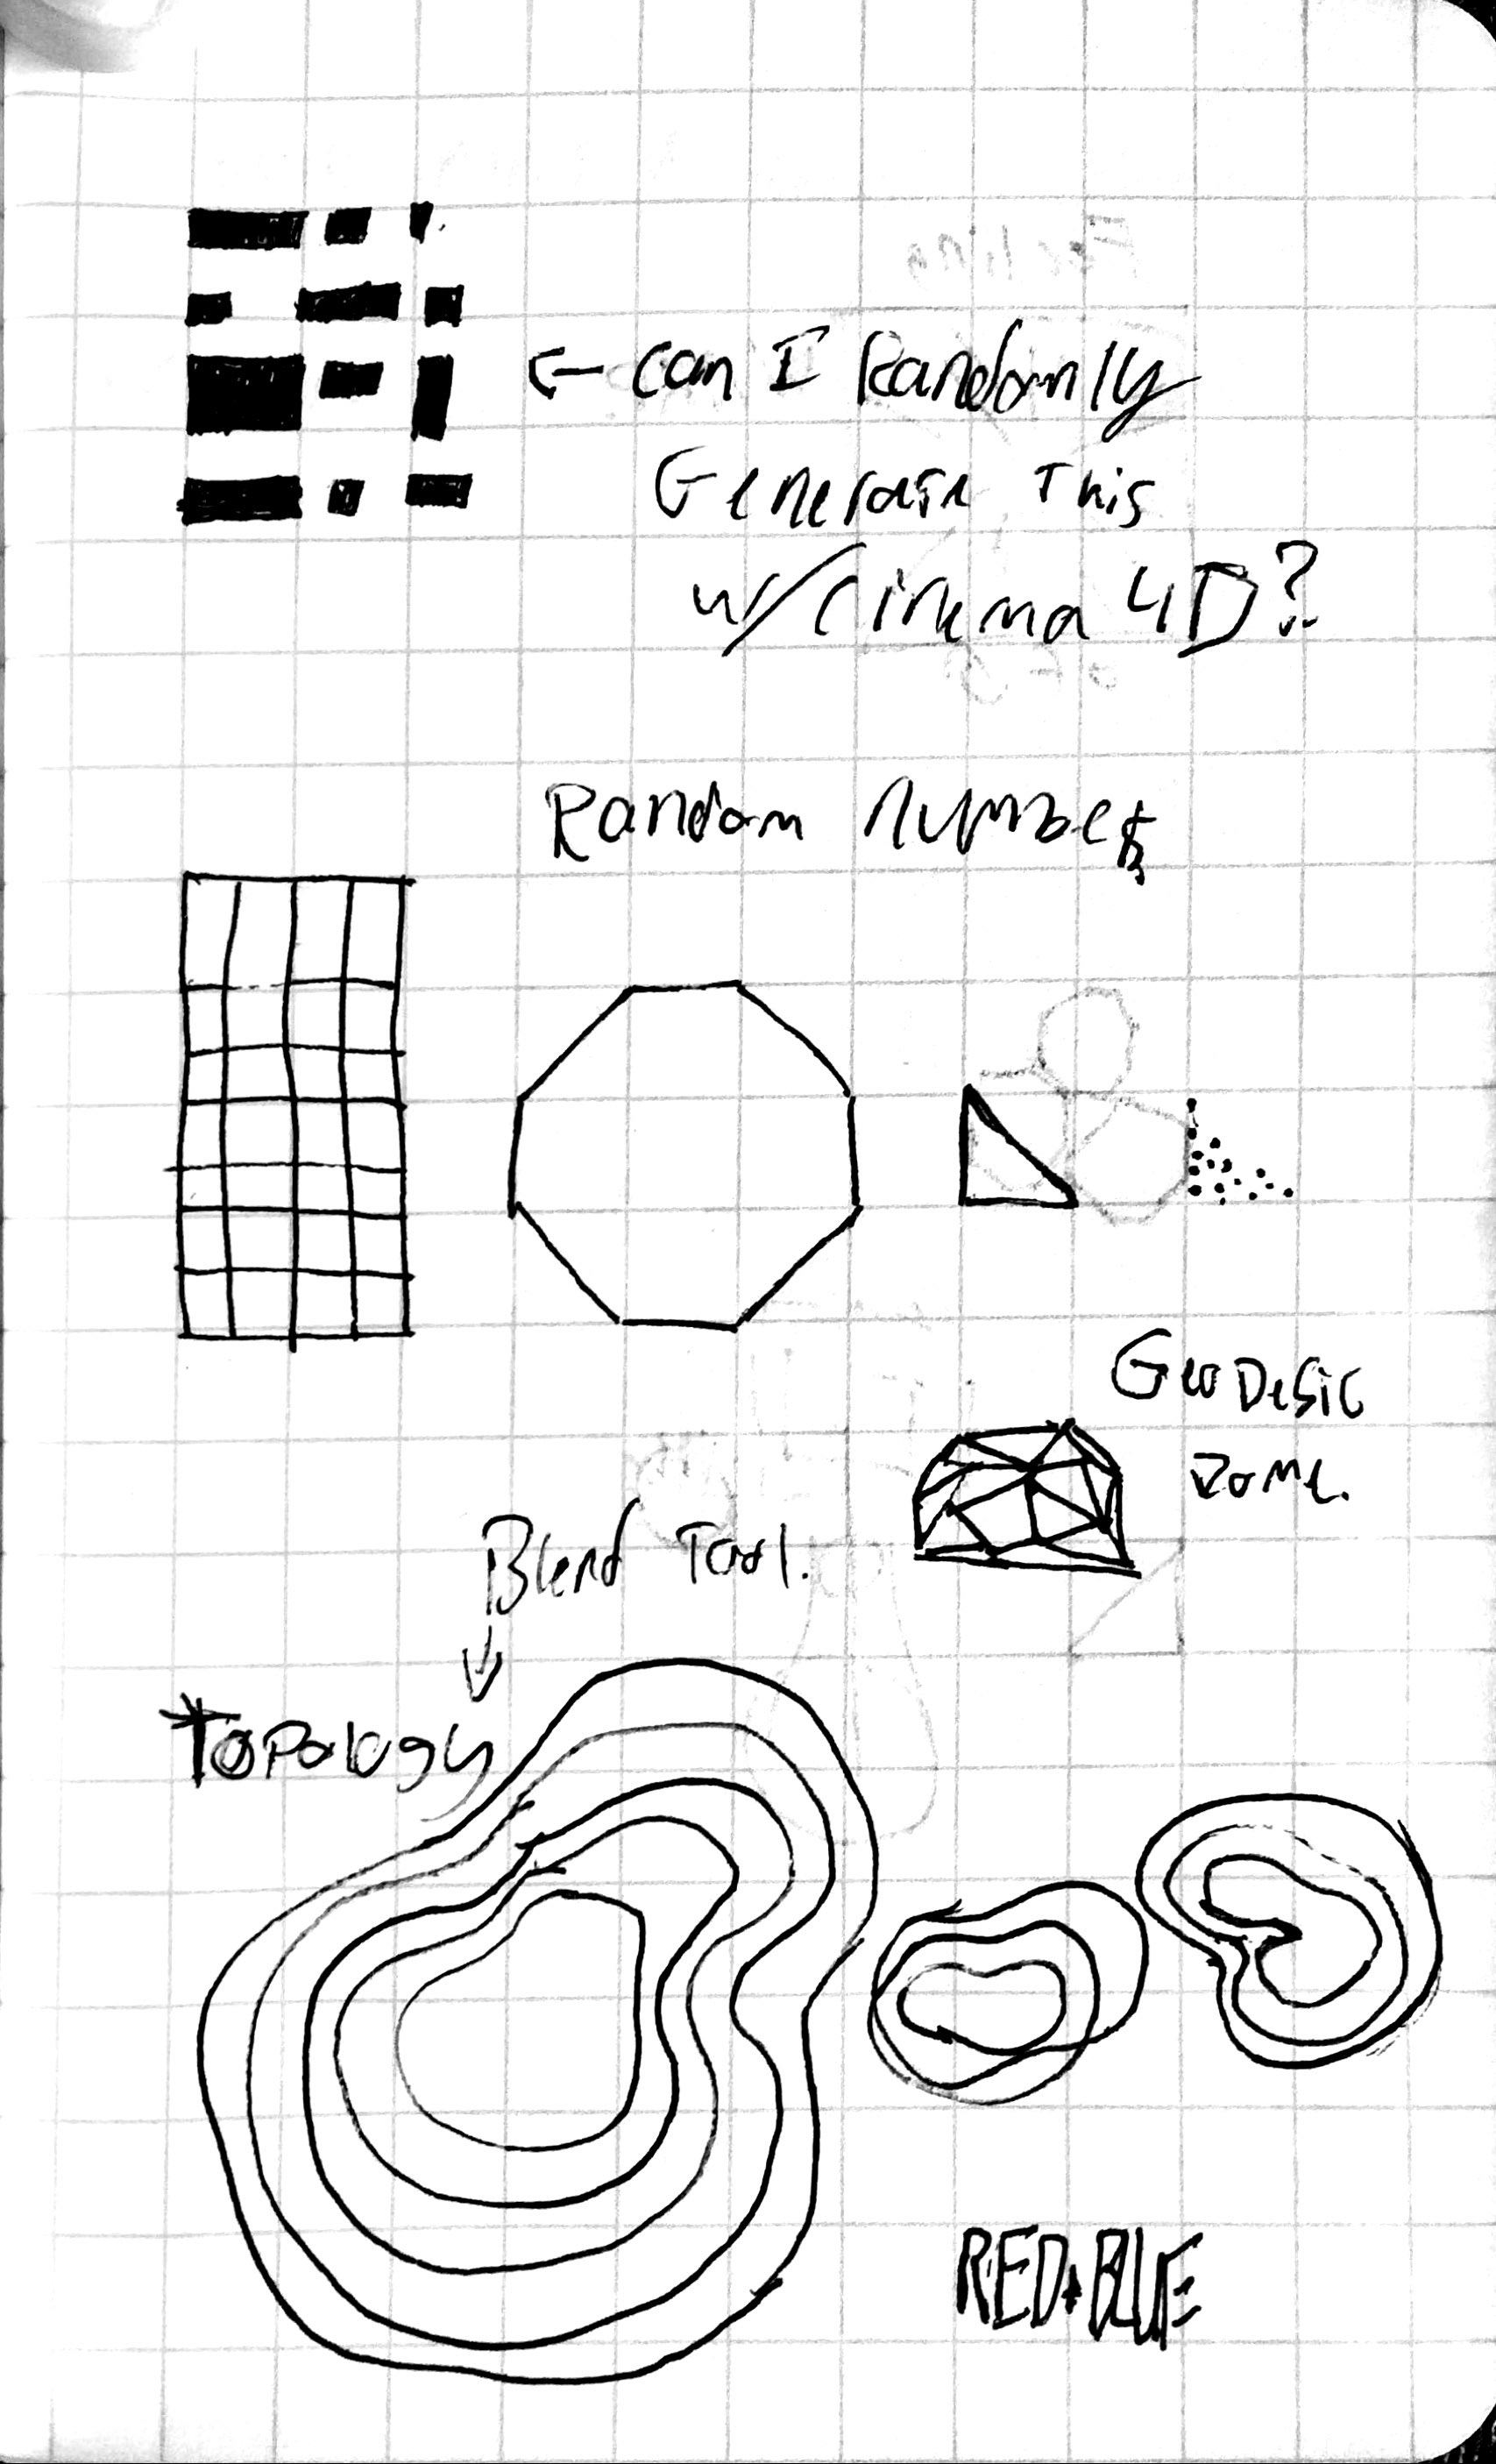 ← Can I Randomly
Generate This
w/Cinema 4D?
Random Numbers
GeoDesic
Dome.
Blend Tool.
↓
Topology
RED+BLUE